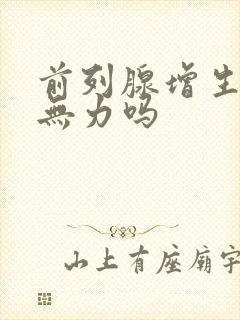 前列腺增生
無力吗
山上有座廟宇